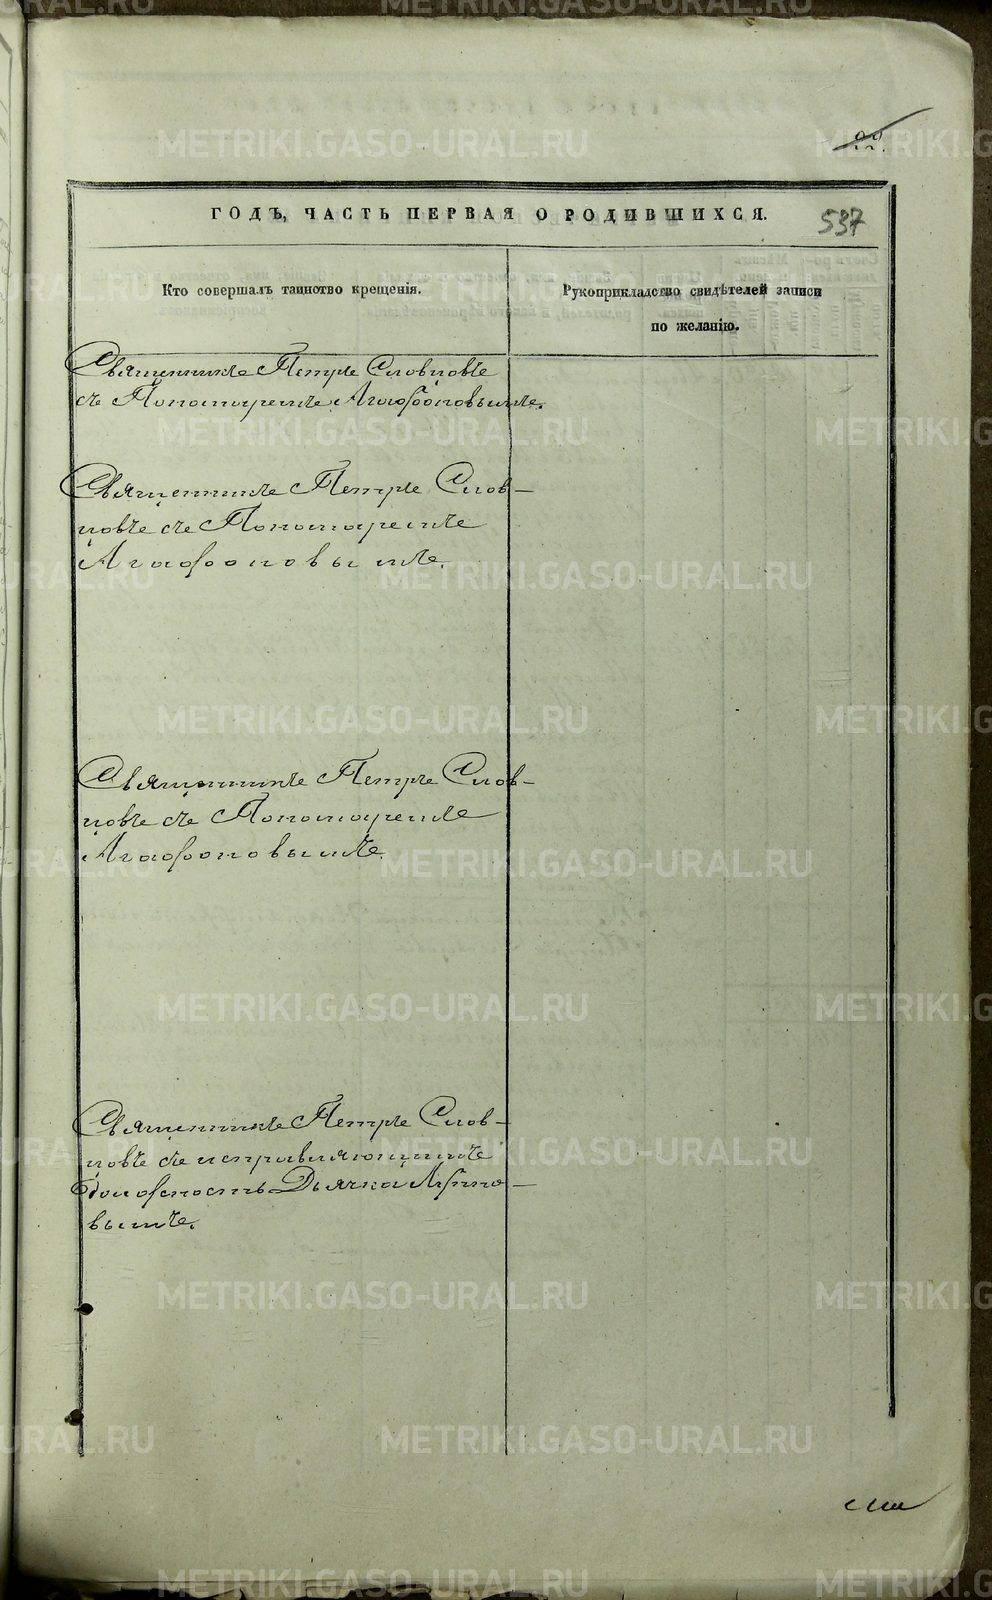 22.
ГОДЪ, ЧАСТЬ ПЕРВАЯ О РОДИВШИХСЯ.
537
Кто совершалъ таинство крещенія.
Рукоприкладство свидѣтелей записи
по желанію.
Священникъ Петръ Словцовъ
съ Пономаремъ Агафоновымъ.
Священникъ Петръ Слов-
цовъ съ Пономаремъ
Агафоновымъ.
Священникъ Петръ Слов-
цовъ съ Пономаремъ
Агафоновымъ.
Священникъ Петръ Слов-
цовъ съ исправляющимъ
должность Дьячка
вымъ.
METRIKI.GASO-URAL.RU